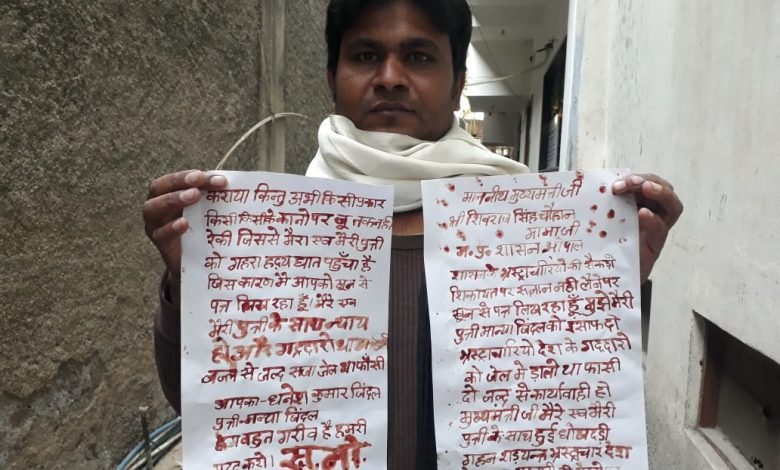 माननीय मुख्यमंत्री जी
श्री शिवराज सिंह चौहान
मामाजी
म. प्र. शासन भोपाल
शासन के भ्रस्टाचारियो की सैकड़ो
शिकायत पर संज्ञान नही लेने पर
खून से पत्र लिख रहा हूँ मुझे मेरी
पुत्री मान्या बिंदल को इंसाफ दो
भ्रस्टाचारियो देश के गददारो
को जेल में डालो या फासी
दो जल्द से कार्यवाही हो
मुख्यमंत्री जी मेरे स्व मेरी
पुत्री के साथ हुई धोखदड़ी
गहन शड़यन्त्र भ्रस्टाचार देश
कराया किन्तु अभी किसी प्रकार
किसी किसी के कानो पर जू तक नही
रेकी जिससे मेरा स्व मेरी पुत्री
को गहरा ह्रदय घात पहुँचा है
जिस कारण में आपको खून से
पत्र लिख रहा हूँ मेरे स्व
मेरी पुत्री के साथ न्याय
हो और गददारो
जल्द से जल्द सजा जेल या फाँसी
आपका - धनेश कुमार बिंदल
पुत्री - मन्या बिंदल
हम बहुत गरीव है हमारी
मदद करो।